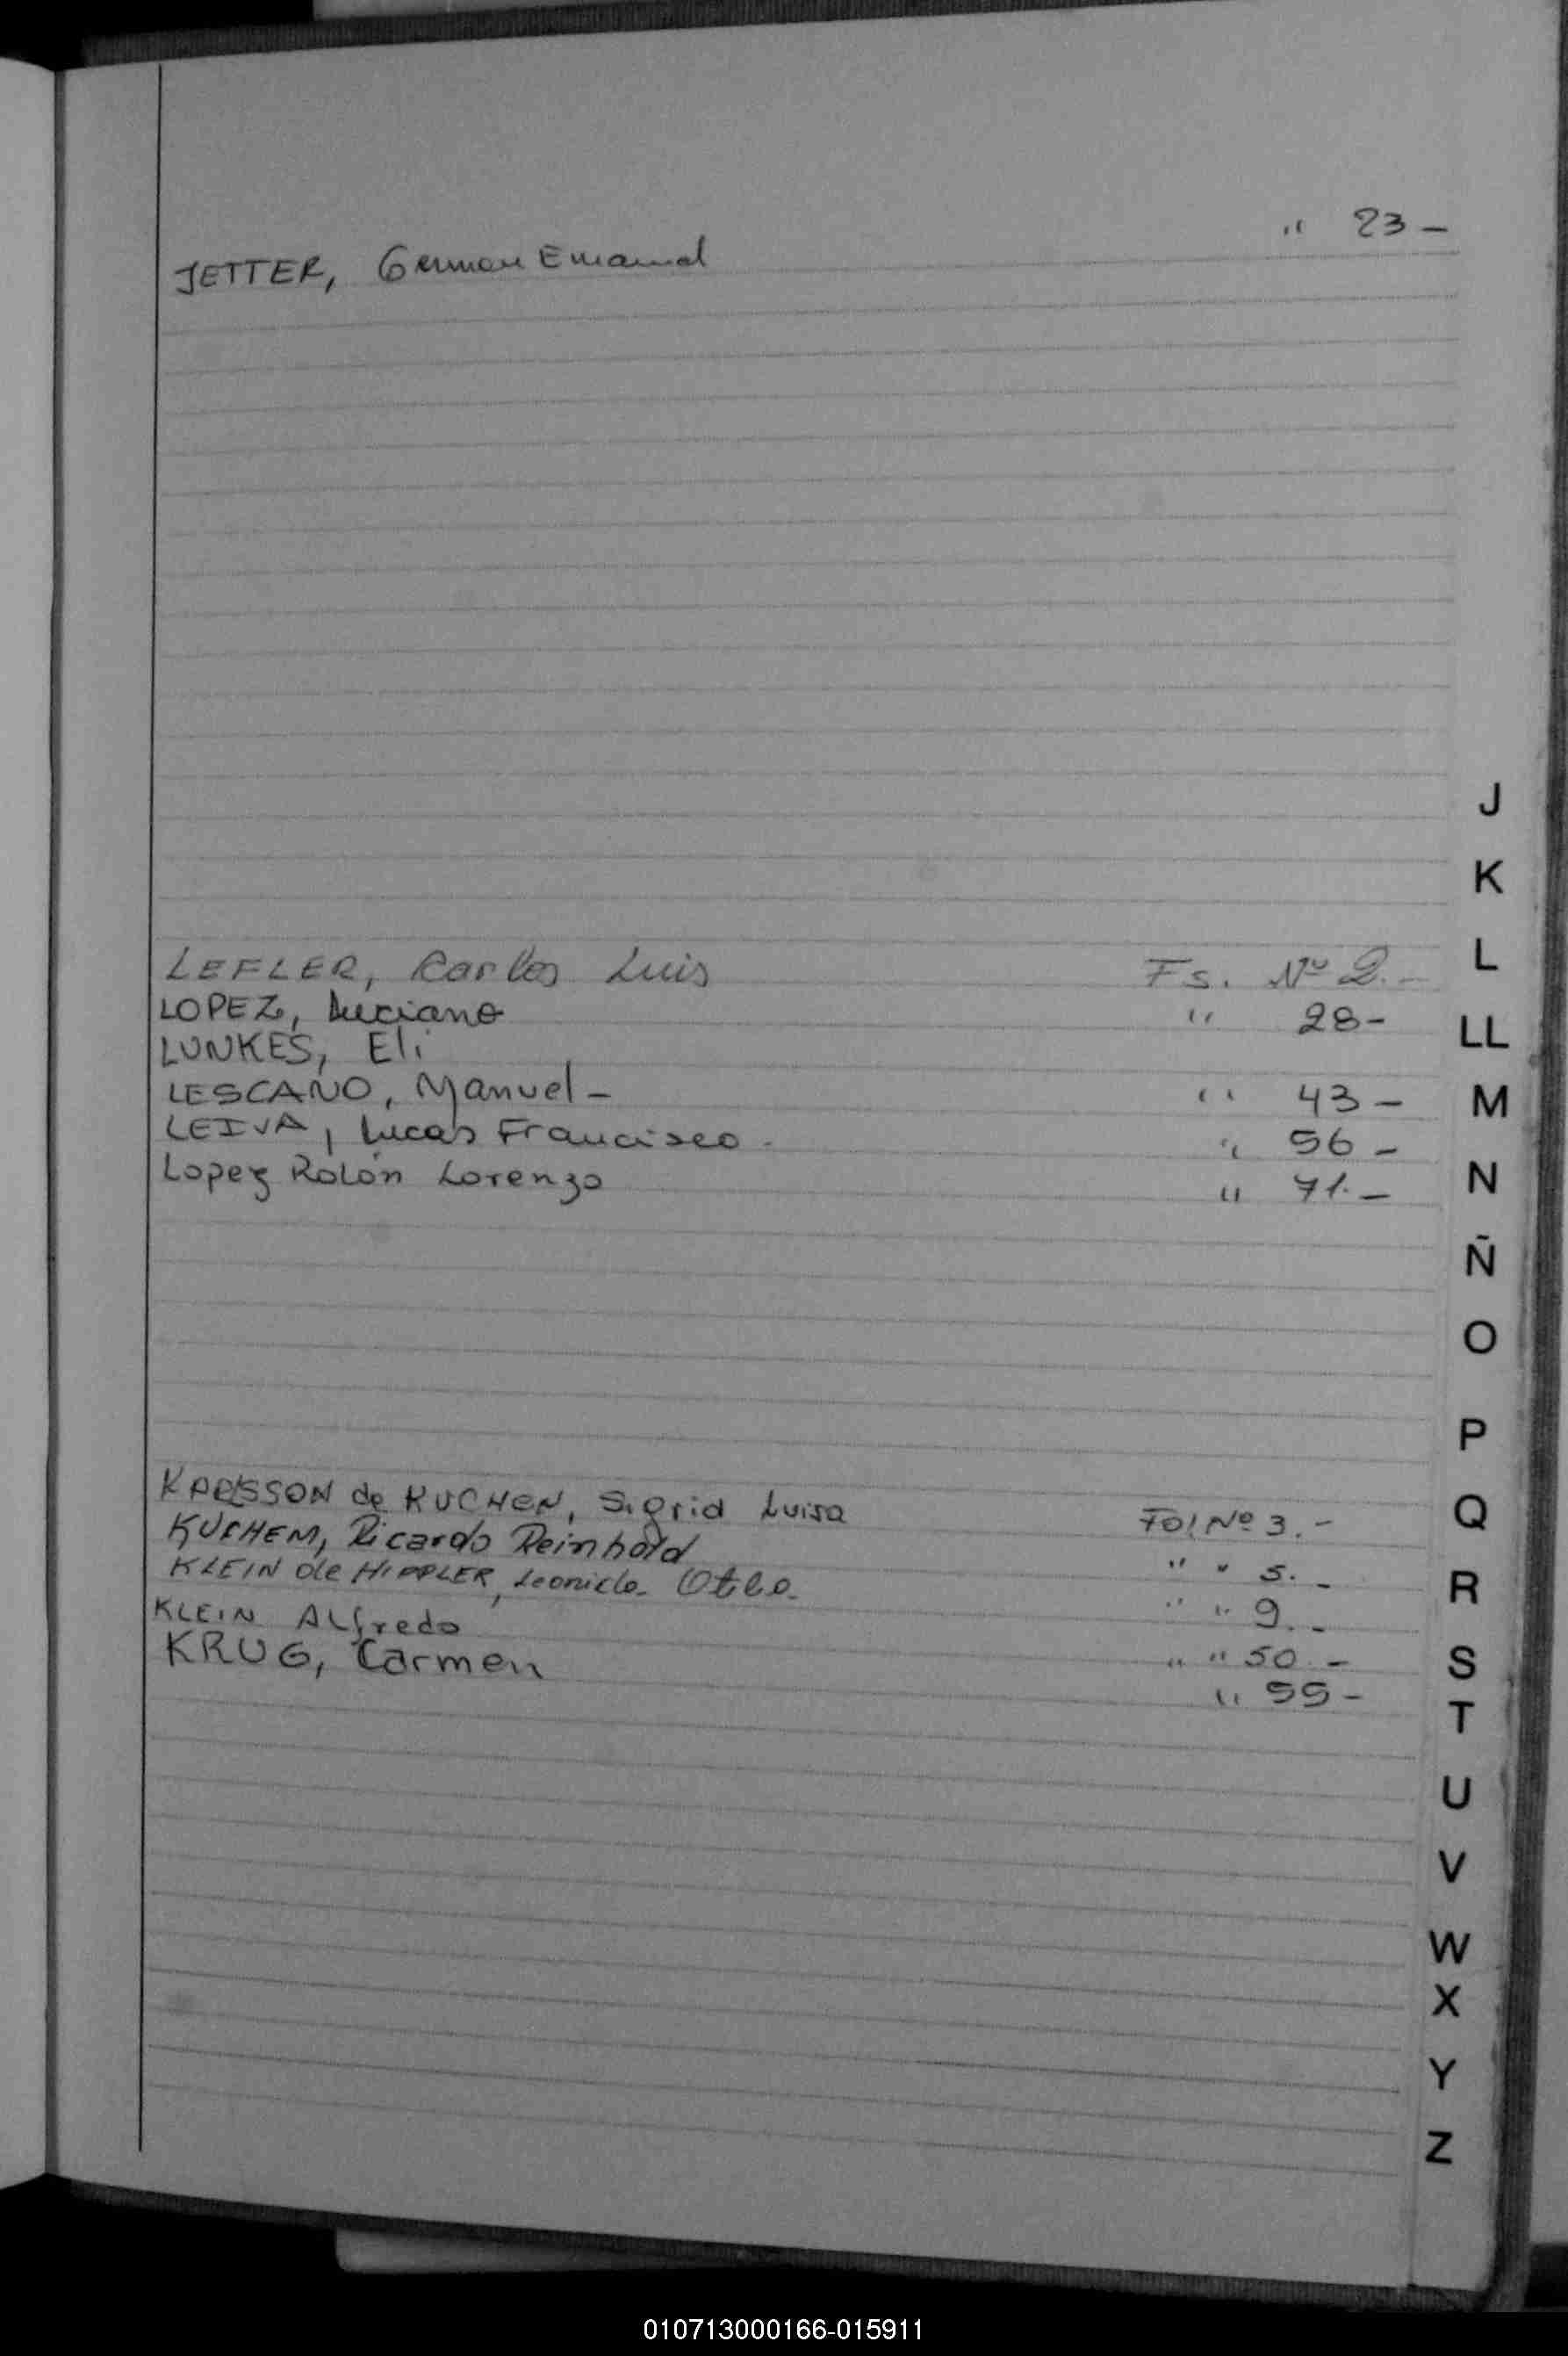 JETTER, German Emanuel " 23 -
LEFLER, Carlos Luis Fs. Nº 2.-
LOPEZ, Luciano " 28-
LUNKES, Eli
LESCANO, Manuel - " 43 -
LEIVA, Lucas Francisco - " 56 -
Lopez Rolón Lorenzo " 71.-
KARLSSON de KUCHEN, Sigrid Luisa Fol Nº 3.-
KUCHEM, Ricardo Reinhold " " 5.-
KLEIN de HIPPLER, Leonida " " 9.-
KLEIN Alfredo " " 50.-
KRUG, Carmen " 55-
J
K
L
LL
M
N
Ñ
O
P
Q
R
S
T
U
V
W
X
Y
Z
010713000166-015911